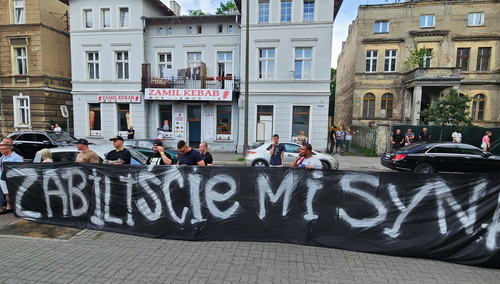 ZAMIL KEBAB
ZAMIL KEBAB
ZABILIŚCIE MI SYNA